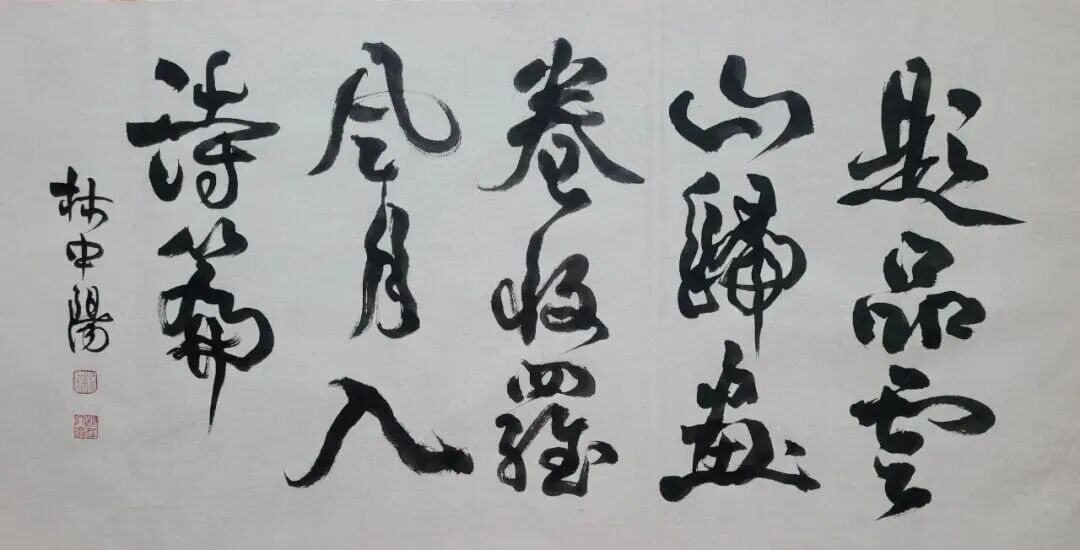 题品雲
山歸畫
卷收羅
风月入
詩篇
林中陽